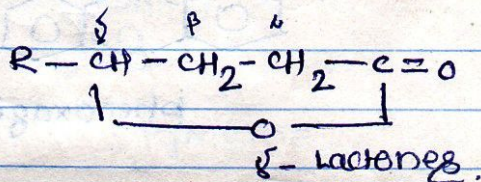 γ β α
R — CH — CH₂ — CH₂ — C = O
O
γ - Lactones.